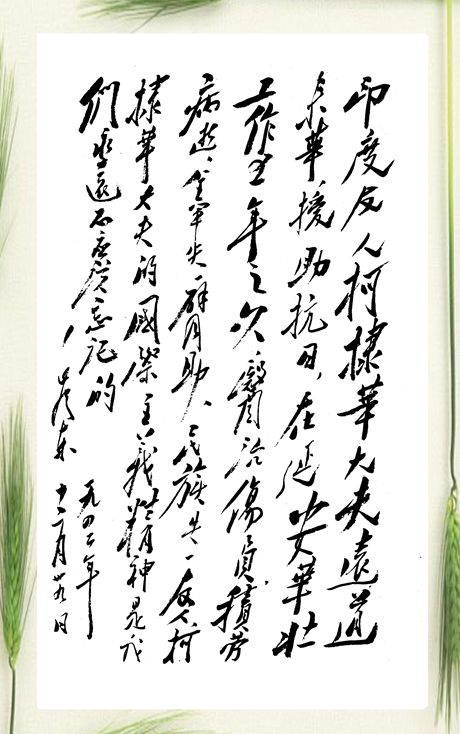 印度友人柯棣華大夫遠道
來華、援助抗日、在延安華北
工作五年之久、醫治傷員、積勞
病逝、全軍失一臂助、民族失一友人、柯
棣華大夫的國際主義精神、是我
們永遠不應該忘記的
毛澤東
一九四二年
十二月廿九日